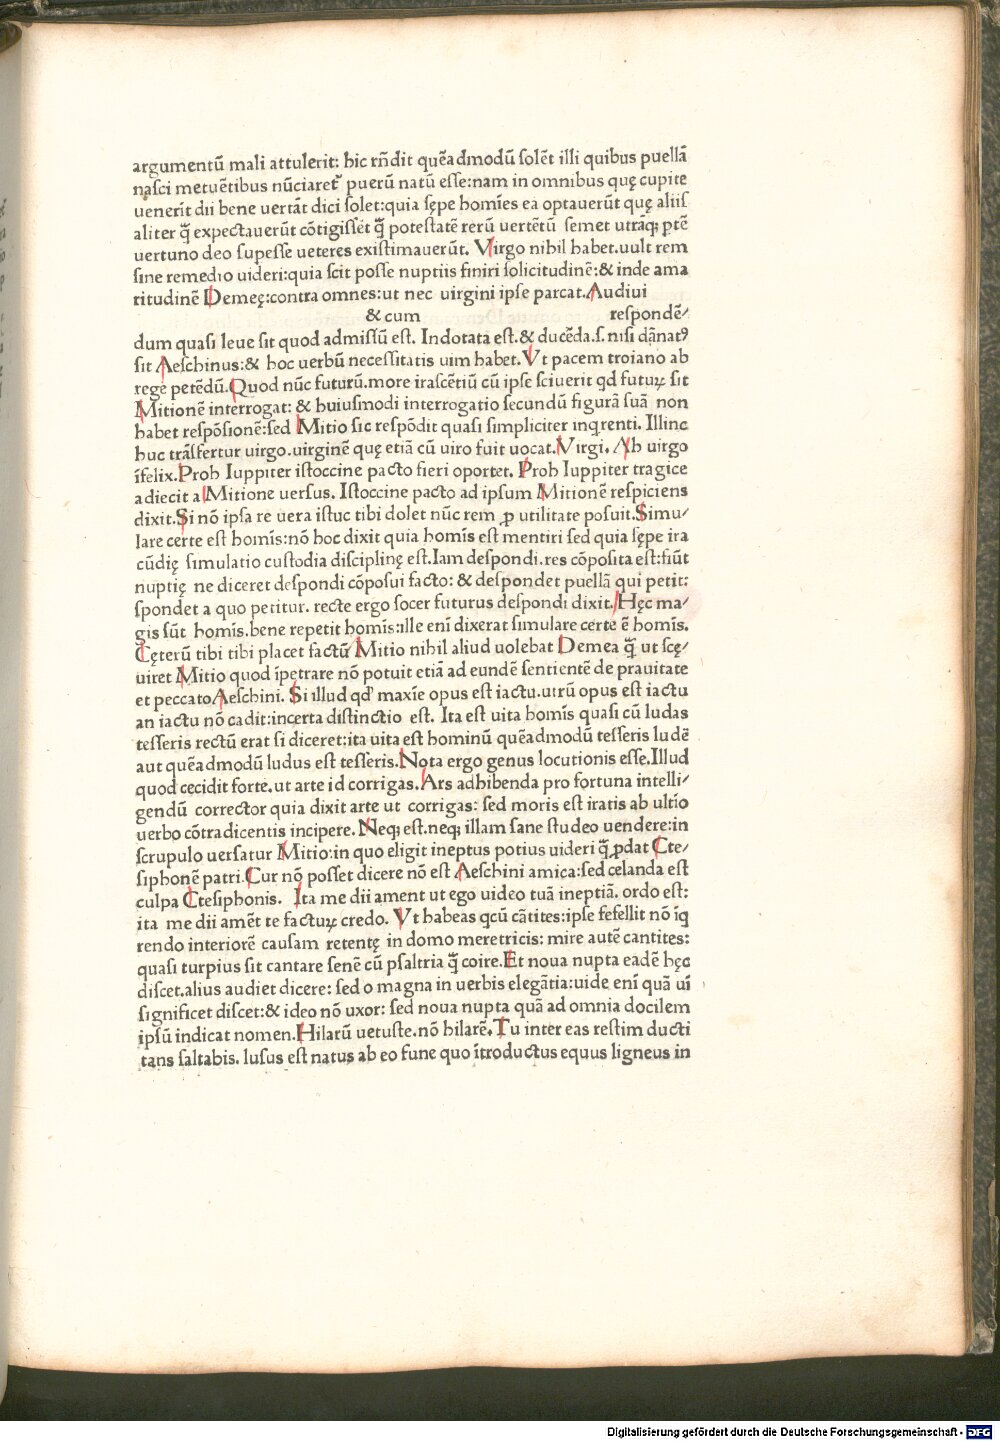 argumentū mali attulerit: hic rñdit quēadmodū solēt illi quibus puellā
nasci metuētibus nūciaret᷒ puerū natū esse:nam in omnibus quę cupite
uenerīt dii bene uertāt dici solet:quia sępe homīes ea optauerūt quę aliis
aliter q̄ expectauerūt cōtigissēt q̄ potestatē rerū uertētū semet utrāq; ptē
uertuno deo supesse ueteres existimauerūt. Virgo nihil habet.uult rem
sine remedio uideri:quia scit posse nuptiis finiri solicitudinē:& inde ama
ritudinē Demeę:contra omnes:ut nec uirgini ipse parcat.Audiui
& cum respondē/
dum quasi leue sit quod admissū est. Indotata est.& ducēda.s. nisi dānatꝰ
sit Aeschinus:& hoc uerbū necessitatis uim habet.Vt pacem troiano ab
rege petēdū.Quod nūc futurū.more irascētiū cū ipse sciuerit qd futuꝝ sit
Mitionē interrogat: & huiusmodi interrogatio secundū figurā suā non
habet respōsionē:sed Mitio sic respōdit quasi simpliciter inqrenti. Illinc
huc trāsfertur uirgo.uirginē quę etiā cū uiro fuit uocat.Virgi. Ah uirgo
īfelix.Proh Iuppiter istoccine pacto fieri oportet. Proh Iuppiter tragice
adiecit a Mitione uersus. Istoccine pacto ad ipsum Mitionē respiciens
dixit.Si nō ipsa re uera istuc tibi dolet nūc rem ꝓ utilitate posuit.Simu/
lare certe est homīs:nō hoc dixit quia homīs est mentiri sed quia sępe ira
cūdię simulatio custodia disciplinę est.Iam despondi.res cōposita est:fiūt
nuptię ne diceret despondi cōposui facto: & despondet puellā qui petit:
spondet a quo petitur. recte ergo socer futurus despondi dixit. Hęc ma/
gis sūt homīs.bene repetit homīs:ille enī dixerat simulare certe ē homīs.
Cęterū tibi tibi placet factū Mitio nihil aliud uolebat Demea q̄ ut scę/
uiret Mitio quod īpetrare nō potuit etiā ad eundē sentientē de prauitate
et peccato Aeschini. Si illud qd' maxīe opus est iactu.utrū opus est iactu
an iactu nō cadit:incerta distinctio est. Ita est uita homīs quasi cū ludas
tesseris rectū erat si diceret:ita uita est hominū quēadmodū tesseris ludē
aut quēadmodū ludus est tesseris.Nota ergo genus locutionis esse.Illud
quod cecidit forte.ut arte id corrigas.Ars adhibenda pro fortuna intelli/
gendū corrector quia dixit arte ut corrigas: sed moris est iratis ab ultio
uerbo cōtradicentis incipere. Neq; est.neq; illam sane studeo uendere:in
scrupulo uersatur Mitio:in quo eligit ineptus potius uideri q̄ ꝓdat Cte/
siphonē patri.Cur nō posset dicere nō est Aeschini amica:sed celanda est
culpa Ctesiphonis. Ita me dii ament ut ego uideo tuā ineptiā. ordo est:
ita me dii amēt te factuꝝ credo. Vt habeas qcū cātites:ipse fefellit nō īq
rendo interiorē causam retentę in domo meretricis: mire autē cantites:
quasi turpius sit cantare senē cū psaltria q̄ coire.Et noua nupta eadē hęc
discet.alius audiet dicere: sed o magna in uerbis elegātia:uide enī quā uī
significet discet:& ideo nō uxor: sed noua nupta quā ad omnia docilem
ipsū indicat nomen.Hilarū uetuste.nō hilarē.Tu inter eas restim ducti
tans saltabis. lusus est natus ab eo fune quo ītroductus equus ligneus in
Digitalisierung gefördert durch die Deutsche Forschungsgemeinschaft - DFG